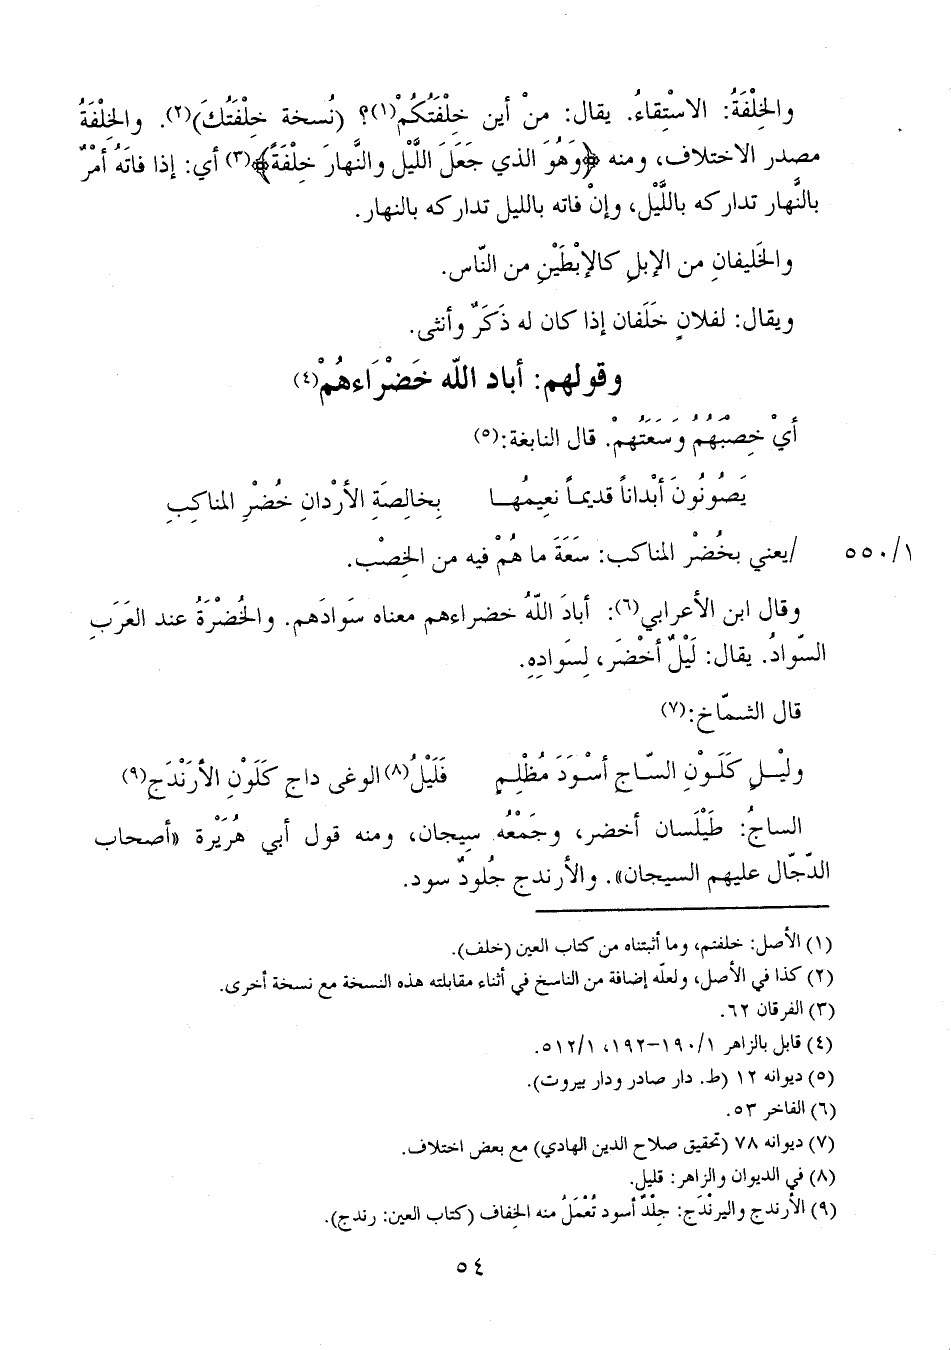 والخِلْفَةُ: الاسْتِقاءُ. يقال: منْ أين خِلْفَتُكُمْ(١)؟ (نُسخة خِلْفَتُكَ)(٢). والخِلْفَةُ
مصدر الاختلاف، ومنه ﴿وَهُوَ الذي جَعَلَ اللَّيْل والنَّهارَ خِلْفَةً﴾(٣) أي: إذا فاتَهُ أمْرٌ
بالنَّهار تداركه باللَّيْل، وإنْ فاته بالليل تداركه بالنهار.
والخَليفانِ من الإبلِ كالإبْطَيْنِ من النّاس.
ويقال: لفلانٍ خَلَفان إذا كان له ذَكَرٌ وأنثى.
وقولهم: أباد اللّه خَضْرَاءهُمْ(٤)
أيْ خِصْبَهُمْ وَسَعَتَهُمْ. قال النابغة:(٥)
يَصُونُونَ أبْداناً قديماً نعِيمُها بِخالِصَةِ الأرْدانِ خُضْرِ المناكِبِ
١/٥٥٠ /يعني بخُضْر المناكب: سَعَةَ ما هُمْ فيه من الخِصْب.
وقال ابن الأعرابي(٦): أبادَ اللّهُ خضراءهم معناه سَوادَهم. والخُضْرَةُ عند العَرَبِ
السّوادُ. يقال: لَيْلٌ أخْضَر، لِسَوادِهِ.
قال الشمّاخ:(٧)
وليْلٍ كَلَوْنِ السّاجِ أسْوَدَ مُظْلِمٍ فَلَيْلُ(٨) الوغى داجٍ كَلَوْنِ الأرَنْدَجِ(٩)
الساجُ: طَيْلَسان أخضر، وجَمْعُه سِيجان، ومنه قول أبي هُرَيْرة «أصحاب
الدّجّال عليهم السيجان». والأرندج جُلودٌ سود.
(١) الأصل: خلفتم، وما أثبتناه من كتاب العين (خلف).
(٢) كذا في الأصل، ولعلّه إضافة من الناسخ في أثناء مقابلته هذه النسخة مع نسخة أخرى.
(٣) الفرقان ٦٢.
(٤) قابل بالزاهر ١/١٩٠–١٩٢، ١/٥١٢.
(٥) ديوانه ١٢ (ط. دار صادر ودار بيروت).
(٦) الفاخر ٥٣.
(٧) ديوانه ٧٨ (تحقيق صلاح الدين الهادي) مع بعض اختلاف.
(٨) في الديوان والزاهر: قليل.
(٩) الأرندج واليرنْدَج: جِلْدٌ أسود تُعْمَلُ منه الخِفاف (كتاب العين: رندج).
٥٤